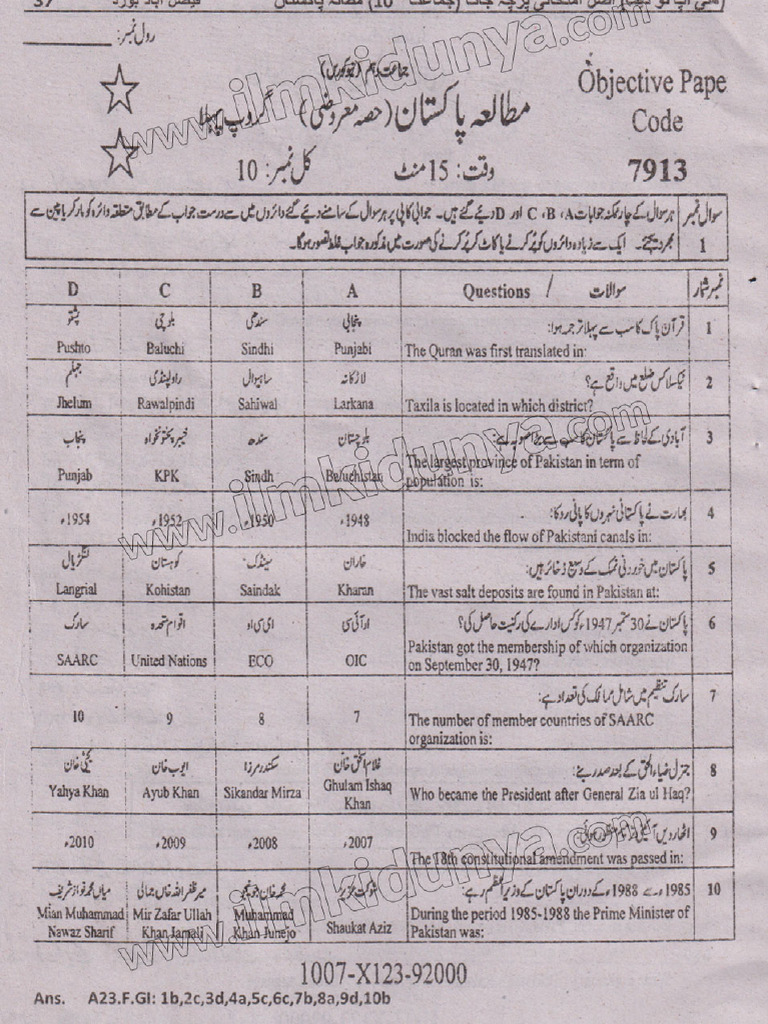 رول نمبر:
جماعت دہم (نیوکورس)
Objective Pape
مطالعہ پاکستان (حصہ معروضی) گروپ پہلا
Code
7913
وقت: 15 منٹ
کل نمبر: 10
سوال نمبر 1
ہر سوال کے چار ممکنہ جوابات A، B، C اور D دیئے گئے ہیں۔ جوابی کاپی پر ہر سوال کے سامنے دیئے گئے دائروں میں سے درست جواب کے مطابق متعلقہ دائرہ کو مارکر یا پین سے
بھر دیجئے۔ ایک سے زیادہ دائروں کو پُر کرنے یا کاٹ کر پُر کرنے کی صورت میں مذکورہ جواب غلط تصور ہوگا۔
D C B A Questions / سوالات نمبر شمار
پشتو بلوچی سندھی پنجابی قرآن پاک کا سب سے پہلا ترجمہ ہوا: 1
Pushto Baluchi Sindhi Punjabi The Quran was first translated in:
جہلم راولپنڈی ساہیوال لاڑکانہ ٹیکسلا کس ضلع میں واقع ہے؟ 2
Jhelum Rawalpindi Sahiwal Larkana Taxila is located in which district?
پنجاب خیبر پختونخواہ سندھ بلوچستان آبادی کے لحاظ سے پاکستان کا سب سے بڑا صوبہ ہے: 3
Punjab KPK Sindh Baluchistan The largest province of Pakistan in term of
population is:
1954ء 1952ء 1950ء 1948ء بھارت نے پاکستانی نہروں کا پانی روکا: 4
India blocked the flow of Pakistani canals in:
لنگڑیال کوہستان سینڈک خاران پاکستان میں خوردنی نمک کے وسیع ذخائر ہیں: 5
Langrial Kohistan Saindak Kharan The vast salt deposits are found in Pakistan at:
سارک اقوام متحدہ ای سی او او آئی سی پاکستان نے 30 ستمبر 1947ء کو کس ادارے کی رکنیت حاصل کی؟ 6
SAARC United Nations ECO OIC Pakistan got the membership of which organization
on September 30, 1947?
سارک تنظیم میں شامل ممالک کی تعداد ہے: 7
10 9 8 7 The number of member countries of SAARC
organization is:
یحییٰ خان ایوب خان سکندر مرزا غلام اسحٰق خان جنرل ضیاء الحق کے بعد صدر بنے: 8
Yahya Khan Ayub Khan Sikandar Mirza Ghulam Ishaq Khan Who became the President after General Zia ul Haq?
2010ء 2009ء 2008ء 2007ء اٹھارویں آئینی ترمیم منظور ہوئی: 9
The 18th constitutional amendment was passed in:
میاں محمد نواز شریف میر ظفر اللہ خاں جمالی محمد خاں جونیجو شوکت عزیز 1985ء سے 1988ء کے دوران پاکستان کے وزیر اعظم رہے: 10
Mian Muhammad Nawaz Sharif Mir Zafar Ullah Khan Jamali Muhammad Khan Junejo Shaukat Aziz During the period 1985-1988 the Prime Minister of
Pakistan was:
1007-X123-92000
Ans. A23.F.GI: 1b,2c,3d,4a,5c,6c,7b,8a,9d,10b
www.ilmkidunya.com
www.ilmkidunya.com
www.ilmkidunya.com